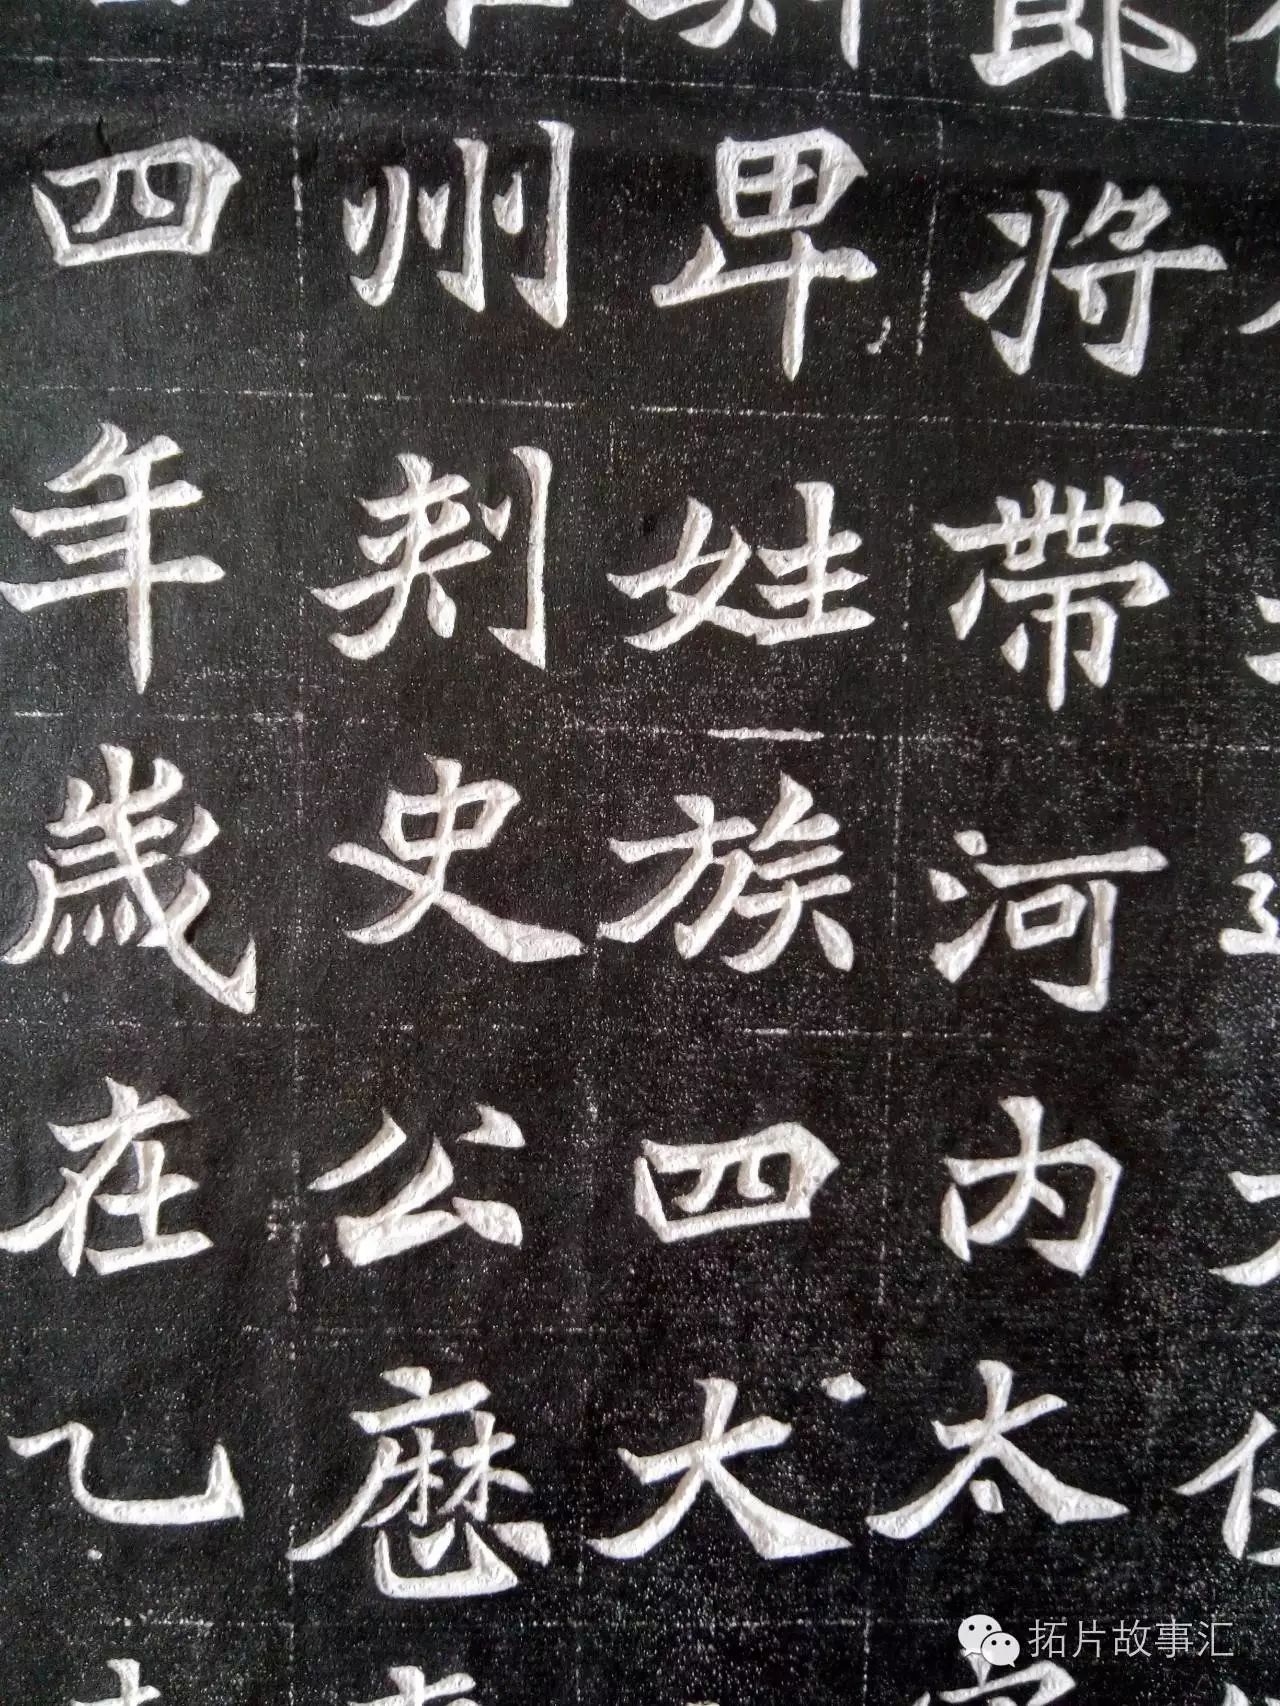 郎将帶河内太
卑姓族四大
州刺史公
四年歲在乙
拓片故事汇